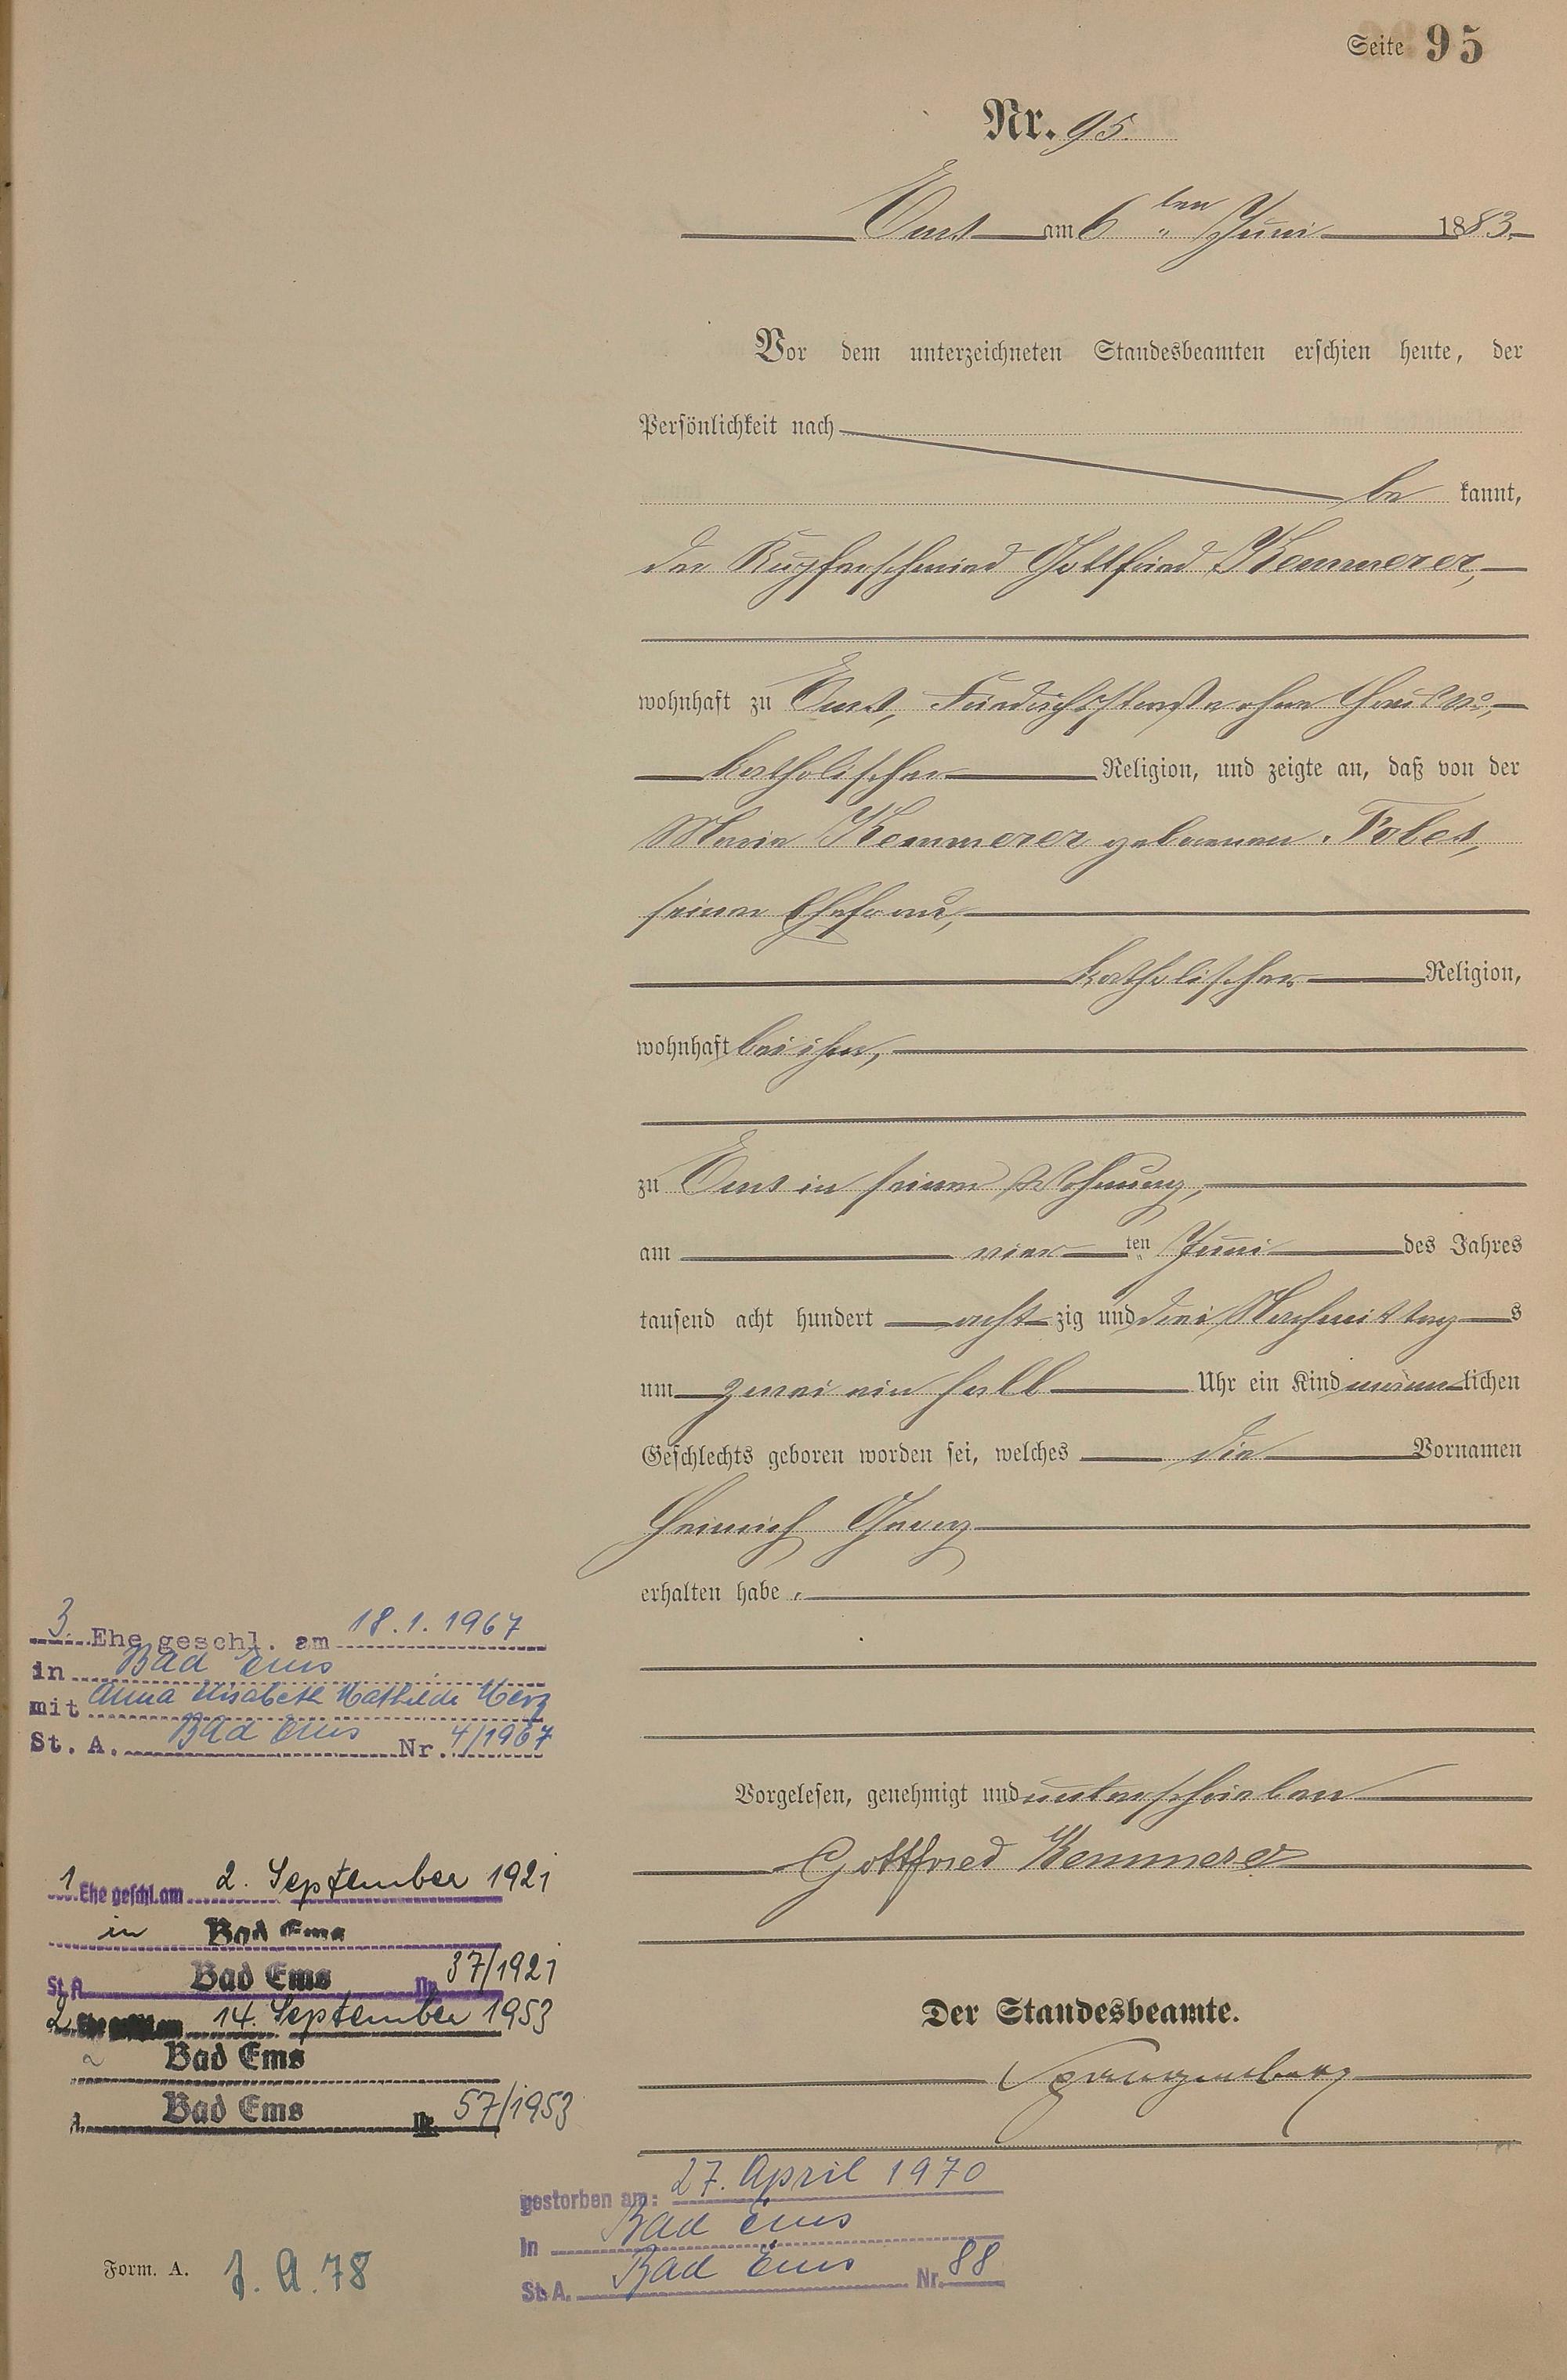 Seite 95
Nr. 95.
Ems am 6ten Juni 1883.
Vor dem unterzeichneten Standesbeamten erschien heute, der
Persönlichkeit nach
be kannt,
der Kupferschmied Gottfried Kemmerer,
wohnhaft zu Ems, Friedrichstraße ohne Haus No.,
katholischer Religion, und zeigte an, daß von der
Maria Kemmerer geborenen Fobes,
seiner Ehefrau,
katholischer Religion,
wohnhaft bei ihm,
zu Ems in seiner Wohnung,
am vier ten Juni des Jahres
tausend acht hundert acht zig und drei Nachmittag s
um zwei ein halb Uhr ein Kind männ lichen
Geschlechts geboren worden sei, welches die Vornamen
Heinrich Georg
erhalten habe.
Vorgelesen, genehmigt und unterschrieben
Gottfried Kemmerer
Der Standesbeamte.
Spangenberg
3. Ehe geschl. am 18.1.1967
in Bad Ems
mit Anna Elisabeth Mathilde Merz
St. A. Bad Ems Nr. 4/1967
1. Ehe geschl. am 2. September 1921
in Bad Ems
St.A. Bad Ems Nr. 37/1921
2. Ehe geschl. am 14. September 1953
Bad Ems
A. Bad Ems Nr. 57/1953
gestorben am: 27. April 1970
in Bad Ems
St.A. Bad Ems Nr. 88
Form. A. J. A. 78